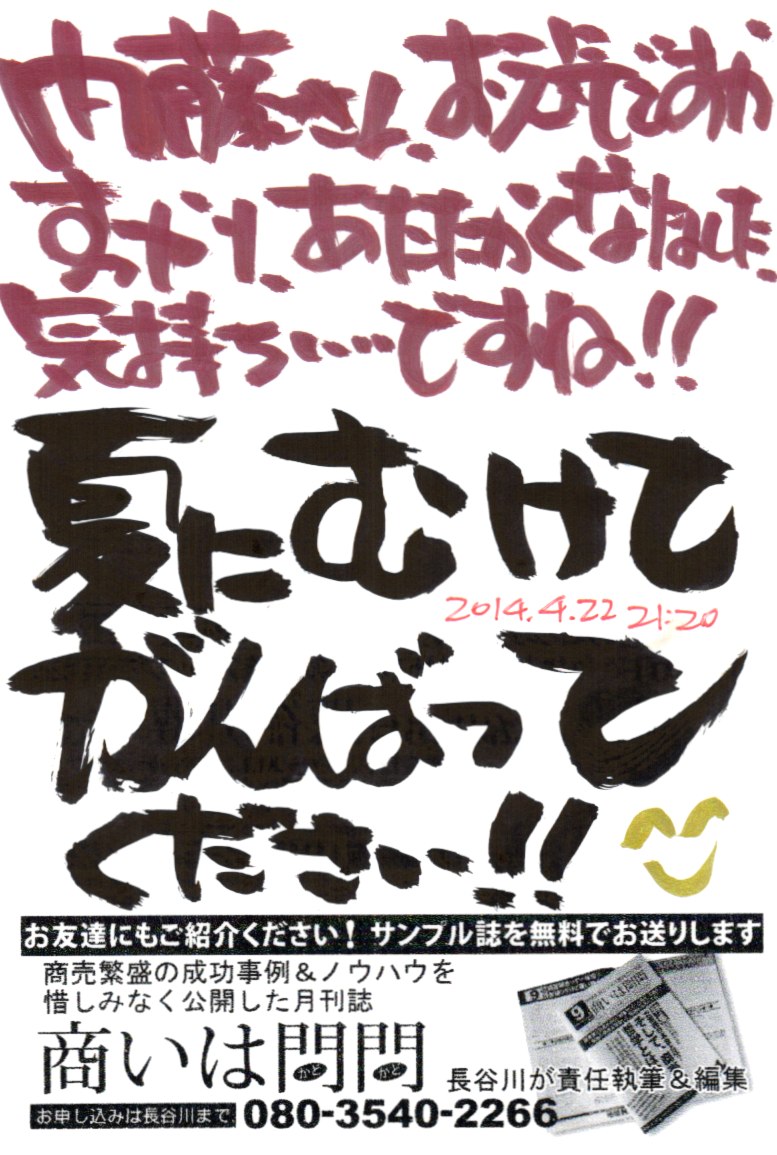 内藤さん、お元気ですか
すっかり、あたたかくなりました、
気持ちいいですね!!
夏にむけて
2014.4.22 21:20
がんばって
ください!!
お友達にもご紹介ください！サンプル誌を無料でお送りします
商売繁盛の成功事例＆ノウハウを
惜しみなく公開した月刊誌
商いは門門
かど かど
長谷川が責任執筆＆編集
お申し込みは長谷川まで 080-3540-2266
9
商いは門門